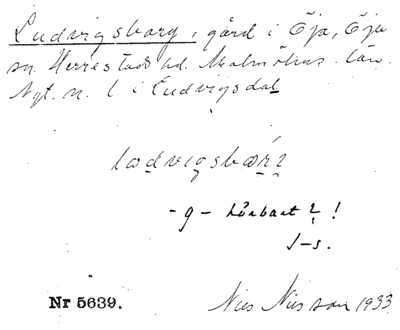 Ludvigsborg, gård i Öja, Öja
sn. Herrestads hd. Malmöhus län.
Nyt. n. l i Ludvigsdal
-g- hörbart ? !
J-s.
Nr 5639.
Nils Nilsson 1933